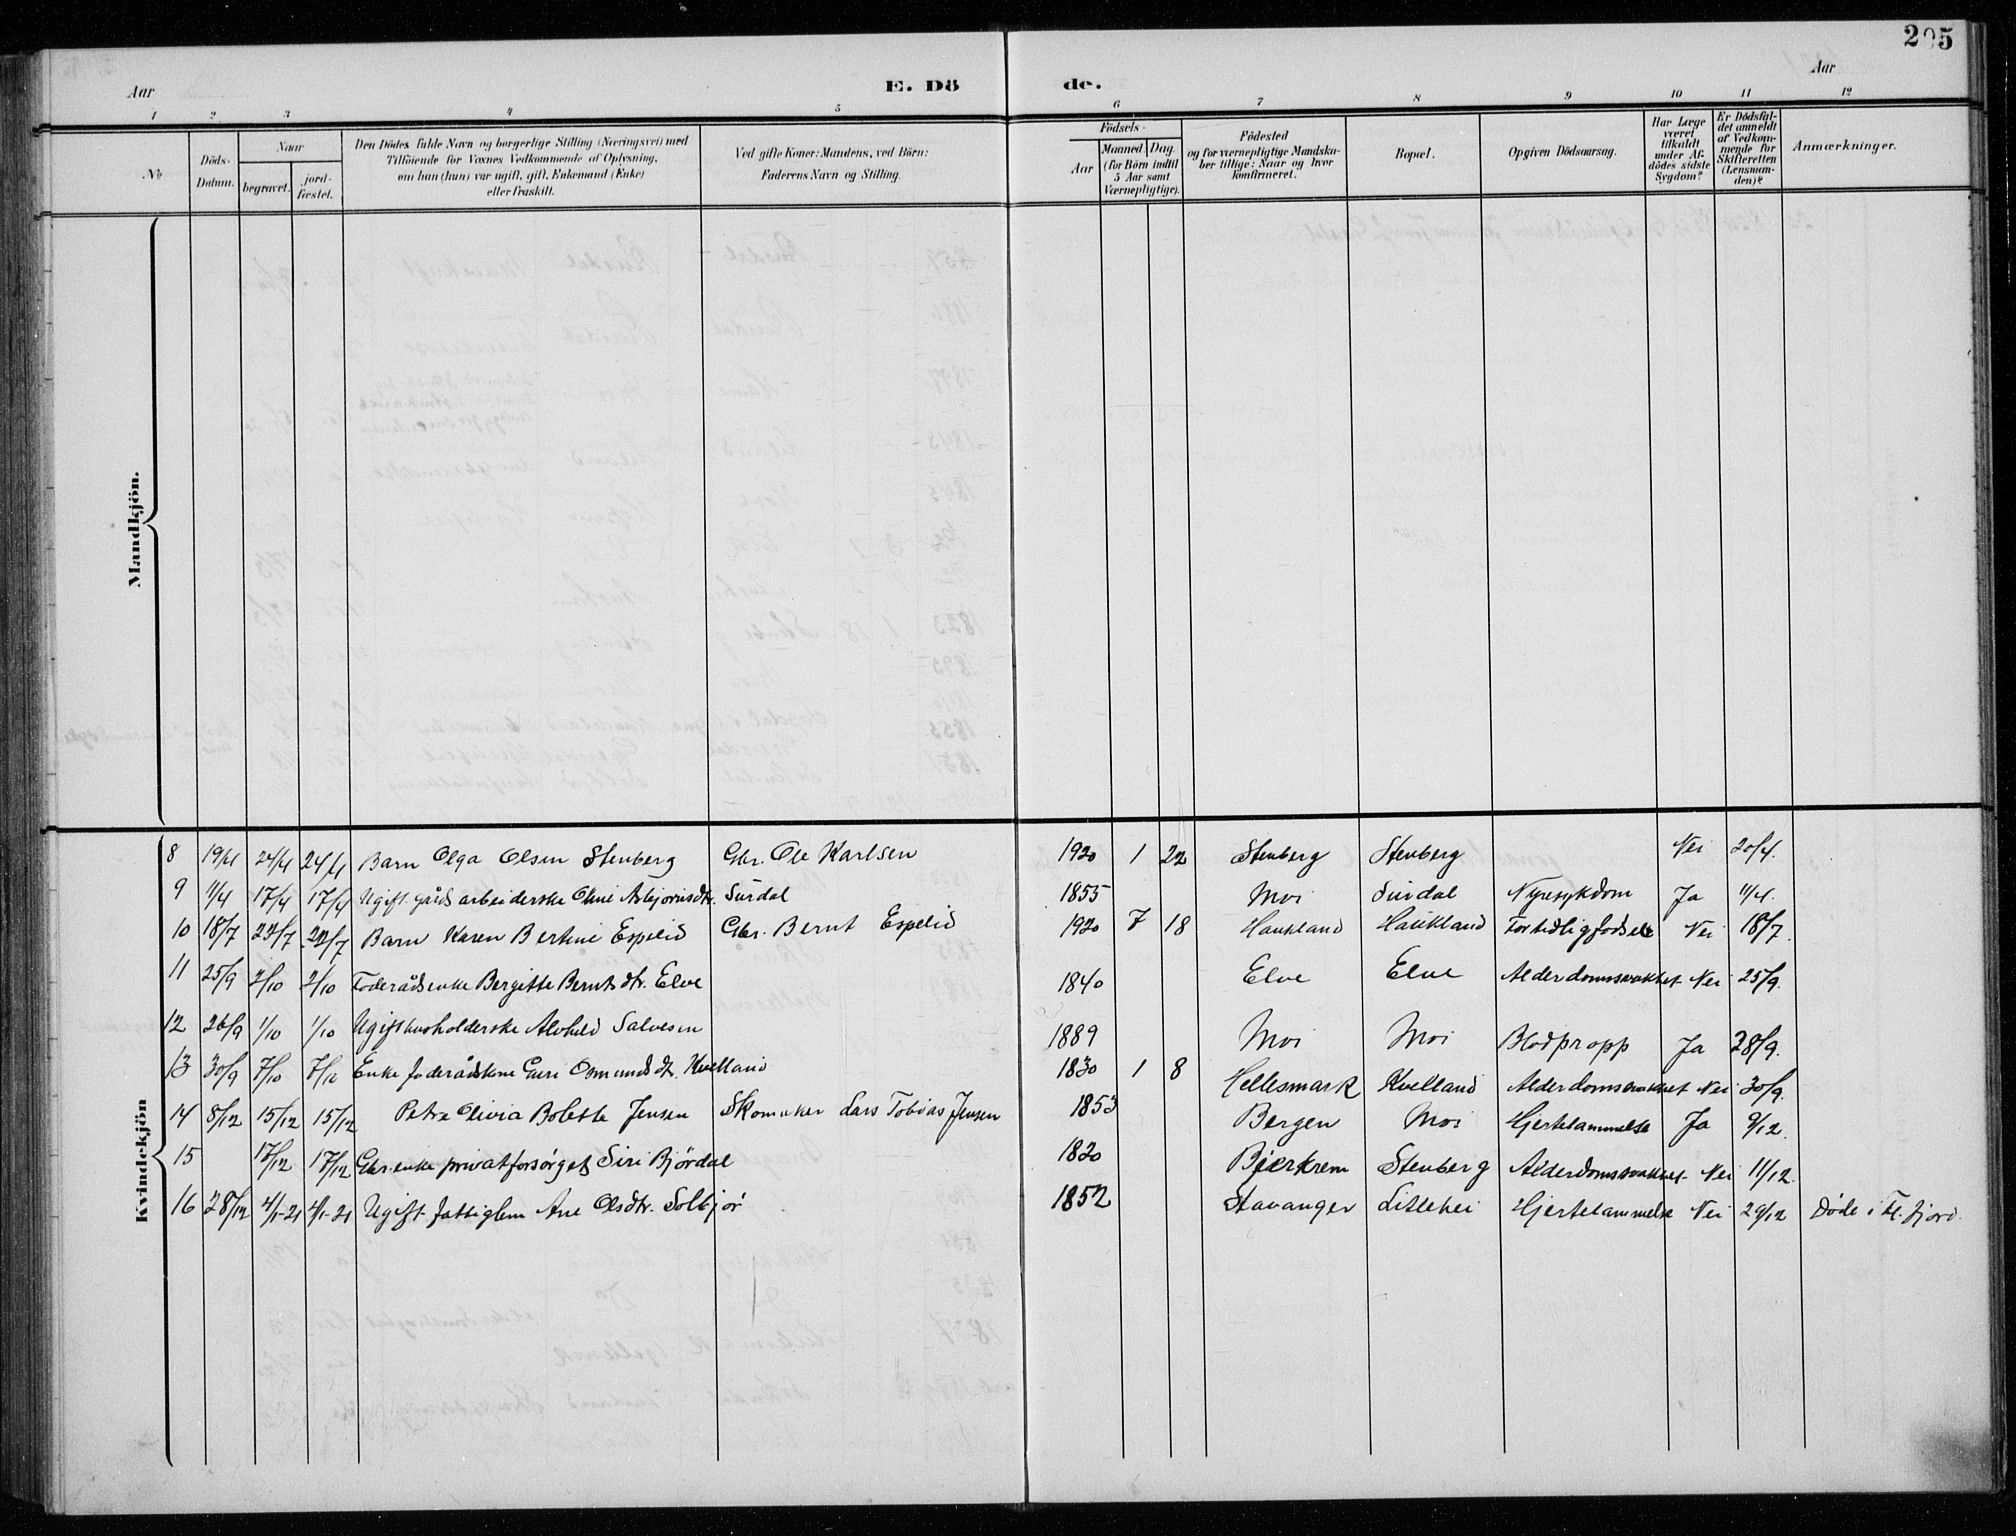 205
Aar
E. Dö de.
Aar
1 2 3 4 5 6 7 8 9 10 11 12
№
Döds-Datum.
Naar
begravet.
jord-fæstet.
Den Dödes fulde Navn og borgerlige Stilling (Næringsvei) med
Tilföiende for Voxnes Vedkommende af Oplysning,
om han (hun) var ugift, gift, Enkemand (Enke)
eller fraskilt.
Ved gifte Koner: Mandens, ved Börn:
Faderens Navn og Stilling.
Födsels-
Aar
Maaned. Dag.
(for Börn indtil
5 Aar samt
Værnepligtige).
Födested
og for værnepligtige Mandska-
ber tillige: Naar og hvor
konfirmeret.
Bopæl.
Opgiven Dödsaarsag.
Har Læge
været
tilkaldt
under Af-
dödes sidste
Sygdom?
Er Dödsfal-
det anmeldt
af Vedkom-
mende for
Skifteretten
(Lensman-
den)?
Anmærkninger.
Mandkjön.
Kvindekjön
8 19/4 24/4 24/4 Barn Olga Olsen Stenberg Gbr. Ole Karlsen 1920 1 22 Stenberg Stenberg Nei 20/4.
9 11/4 17/4 17/4 Ugift gårdsarbeiderske Oline Asbjørnsdtr. Surdal 1855 Moi Surdal Nyresykdom Ja 11/4.
10 18/7 22/7 22/7 Barn Karen Bertine Espelid Gbr. Bernt Espelid 1920 7 18 Haukland Haukland Fortidlig fødsel Nei 18/7.
11 25/9 2/10 2/10 Føderådsenke Bergitte Berntsdtr. Elve 1840 Elve Elve Alderdomssvakhet Nei 25/9.
12 26/9 1/10 1/10 Ugift husholderske Alvhild Salvesen 1889 Moi Moi Blodpropp Ja 28/9.
13 30/9 7/10 7/10 Enke føderådskone Guri Osmundsdtr. Kvelland 1830 1 8 Hellesmark Kvelland Alderdomssvakhet Nei 30/9.
14 8/12 15/12 15/12 Petra Olivia Bolette Jensen Skomaker Lars Tobias Jensen 1853 Bergen Moi Hjertelammelse Ja 9/12.
15 17/12 17/12 Gbr.enke privatforsørget Siri Bjørdal 1820 Bjerkrem Stenberg Alderdomssvakhet Nei 11/12.
16 28/12 4/1-21 4/1-21 Ugift fattiglem Ane Olsdtr. Solbjør 1852 Stavanger Litlehei Hjertelammelse Nei 29/12 Døde i Fl. fjord.